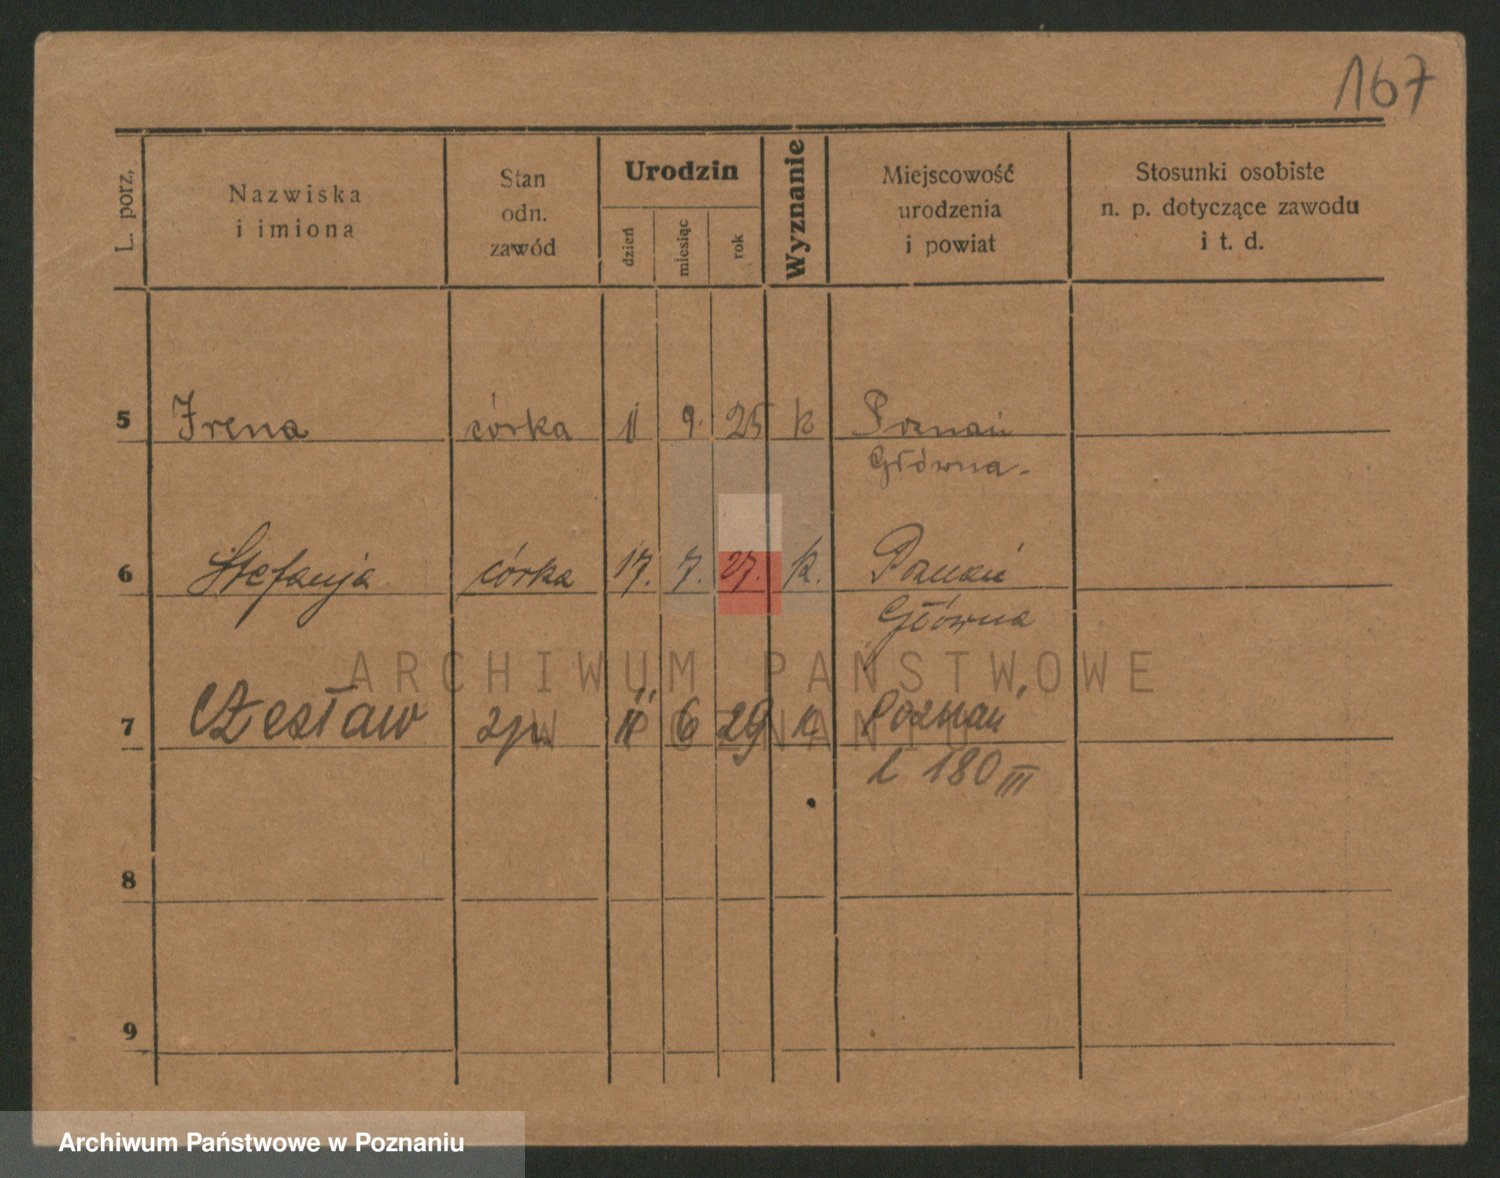 167
L. porz.
Nazwiska
i imiona
Stan
odn.
zawód
Urodzin
dzień
miesiąc
rok
Wyznanie
Miejscowość
urodzenia
i powiat
Stosunki osobiste
n. p. dotyczące zawodu
i t. d.
5 Irena córka 11 9. 25 k Poznań
Główna-
6 Stefanja córka 17. 7. 27. k. Poznań
Główna
ARCHIWUM PAŃSTWOWE
W POZNANIU
7 Czesław 6 29 k Poznań
180 III
8
9
Archiwum Państwowe w Poznaniu